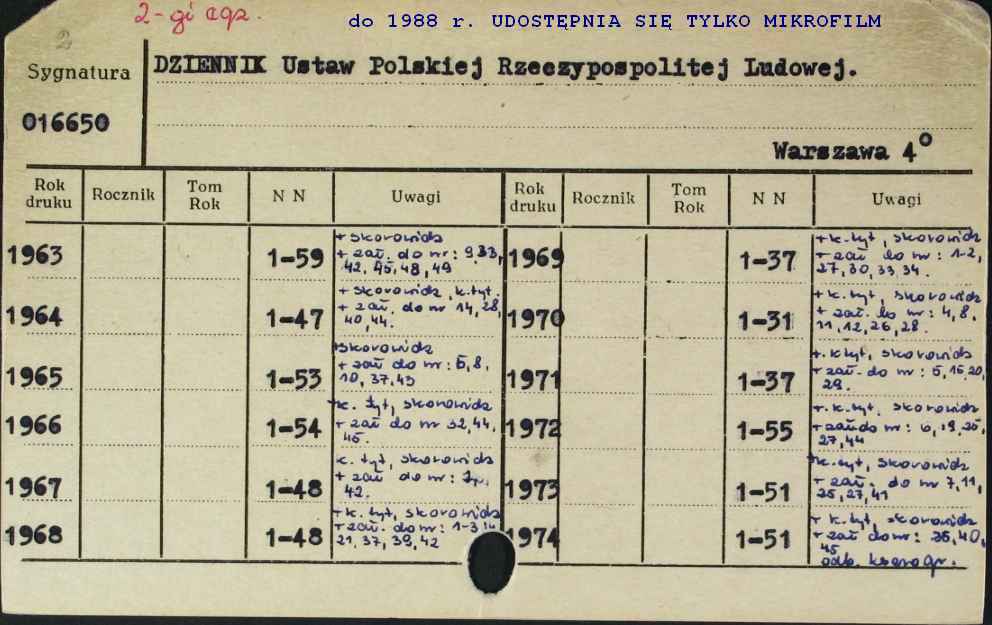 2-gi egz.
do 1988 r. UDOSTĘPNIA SIĘ TYLKO MIKROFILM
2
Sygnatura
DZIENNIK Ustaw Polskiej Rzeczypospolitej Ludowej.
016650
Warszawa 4°
Rok druku Rocznik Tom Rok N N Uwagi Rok druku Rocznik Tom Rok N N Uwagi
1963 1-59
+ skorowidz
+ zał. do nr: 9,33,
42, 45, 48, 49
1964 1-47
+ skorowidz, k.tyt.
+ zał. do nr 14, 28,
40, 44.
1965 1-53
+skorowidz
+ zał do nr: 5, 8,
10, 37, 43
1966 1-54
+k. tyt, skorowidz
+ zał do nr 32, 44,
45.
1967 1-48
k. tyt, skorowidz
+ zał do nr:
42.
1968 1-48
+ k. tyt, skorowidz
+ zał. do nr: 1-3
21, 37, 39, 42
1969 1-37
+ k. tyt, skorowidz
+ zał do nr: 1-2,
27, 30, 33, 34.
1970 1-31
+ k. tyt, skorowidz
+ zał. do nr: 4, 8,
11, 12, 26, 28.
1971 1-37
+. k tyt, skorowidz
+ zał. do nr: 5, 15, 20,
29.
1972 1-55
+. k. tyt. skorowidz
+ zał do nr: 6, 19, 25,
27, 44
1973 1-51
+k. tyt, skorowidz
+ zał. do nr 7, 11,
25, 27, 41
1974 1-51
+ k. tyt, skorowidz
+ zał do nr: 35, 40,
45
odb. kserogr.